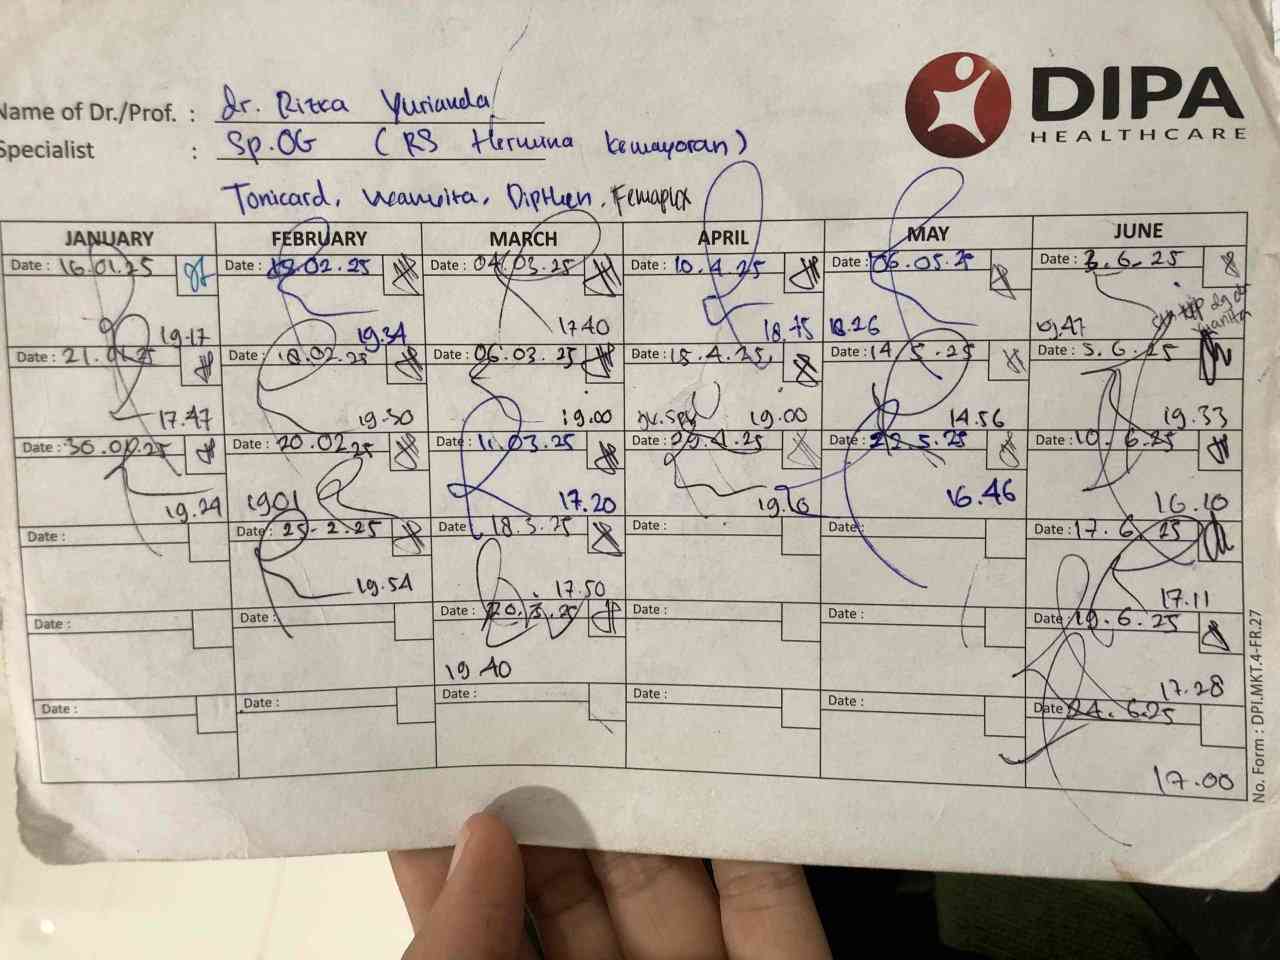 DIPA
HEALTHCARE
Name of Dr./Prof. : dr. Rizka Yurianda
Specialist : Sp.OG (RS Hermina Kemayoran)
Tonicard, Dipthen, Femaplex
JANUARY FEBRUARY MARCH APRIL MAY JUNE
Date : 16.01.25 Date : 02.25 Date : 04.03.25 Date : 10.4.25 Date : 06.05.25 Date : 3.6.25
19.17 19.34 17.40 18.45 18.26 19.47
Date : 21. Date : 18.02.25 Date : 06.03.25 Date : 15.4.25 Date : 14.5.25 Date : 5.6.25
17.47 19.30 19.00 19.00 14.56 19.33
Date : 30.01.25 Date : 20.02.25 Date : 11.03.25 Date : 29.4.25 Date : 22.5.25 Date : 10.6.25
19.24 1901 17.20 19.16 16.46 16.10
Date : Date : 25-2.25 Date : 18.3.25 Date : Date : Date : 17.6.25
19.54 17.50 17.11
Date : Date : Date : 20.3.25 Date : Date : Date : 19.6.25
19.40 17.28
Date : Date : Date : Date : Date : Date : 24.6.25
17.00
No. Form : DPI.MKT.4-FR.27